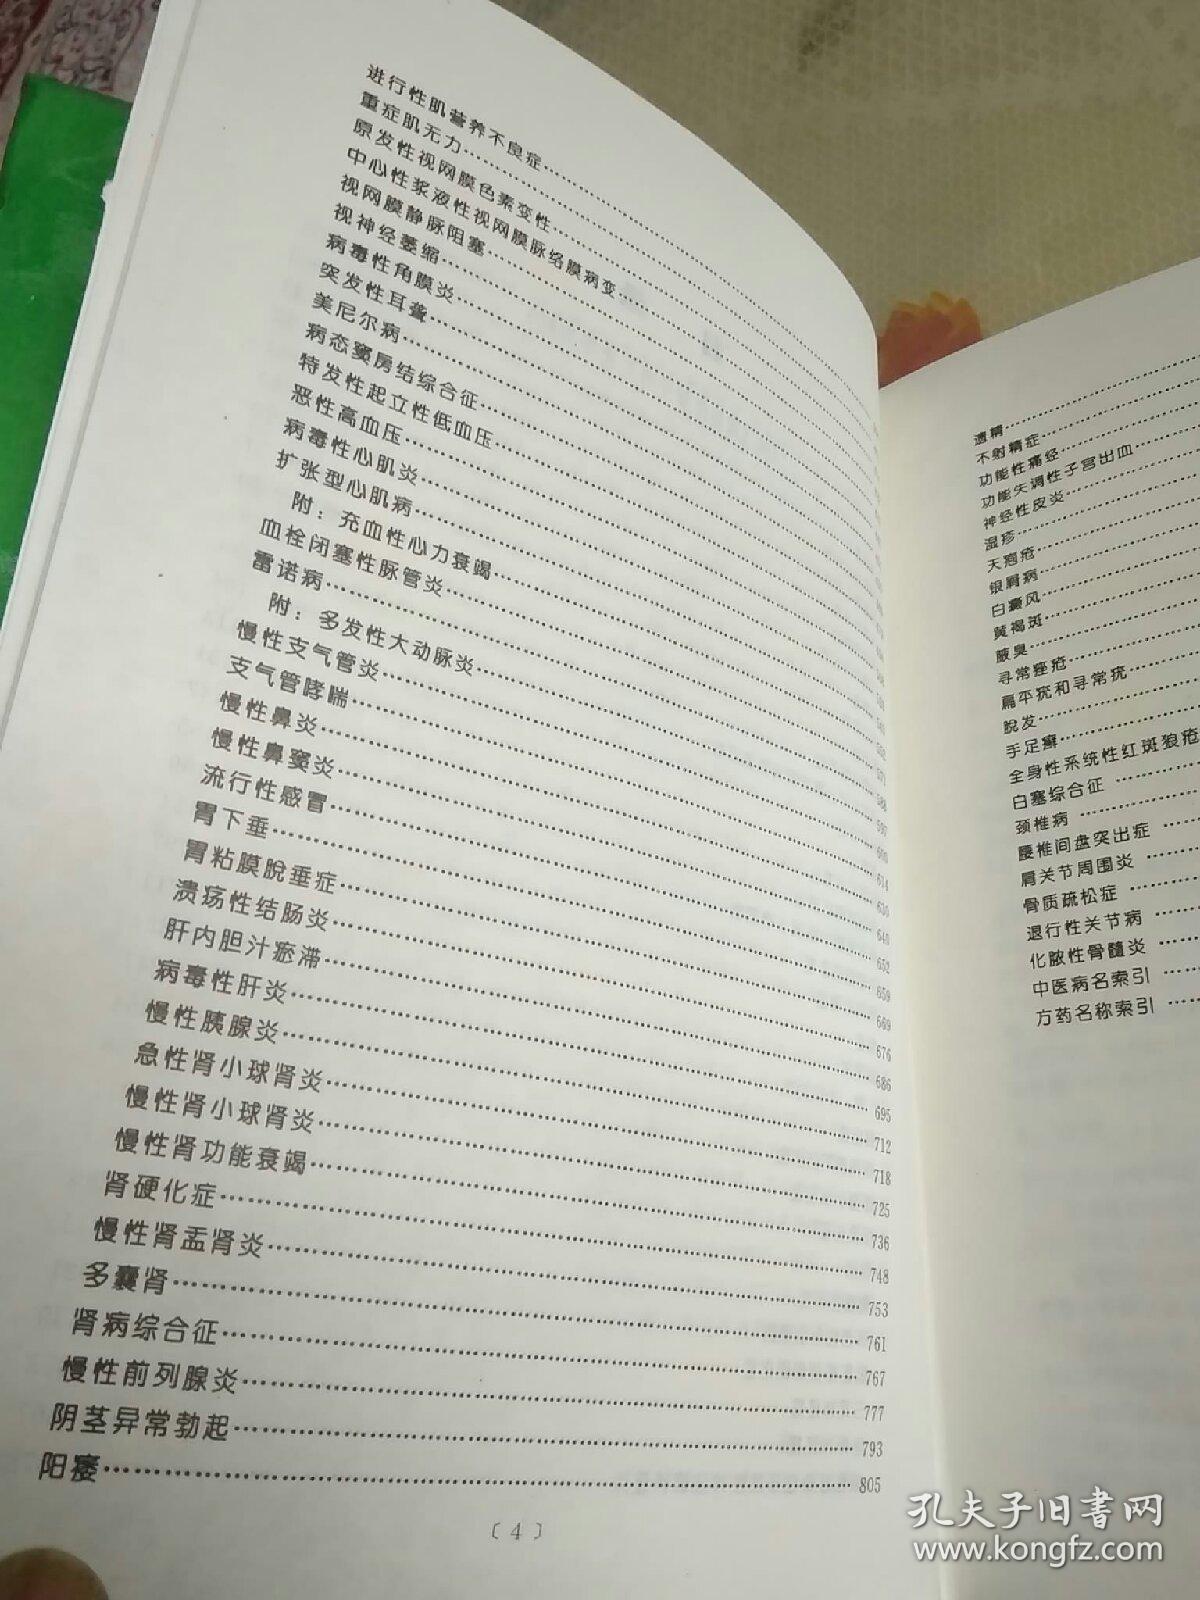 进行性肌营养不良症
重症肌无力
原发性视网膜色素变性
中心性浆液性视网膜脉络膜病变
视网膜静脉阻塞
视神经萎缩
病毒性角膜炎
突发性耳聋
美尼尔病
病态窦房结综合征
特发性起立性低血压
恶性高血压
病毒性心肌炎
扩张型心肌病
附：充血性心力衰竭
血栓闭塞性脉管炎
雷诺病
附：多发性大动脉炎
慢性支气管炎
支气管哮喘
慢性鼻炎
慢性鼻窦炎
流行性感冒
胃下垂
胃粘膜脱垂症
溃疡性结肠炎
肝内胆汁瘀滞
病毒性肝炎
慢性胰腺炎
急性肾小球肾炎
慢性肾小球肾炎
慢性肾功能衰竭
肾硬化症
慢性肾盂肾炎……748
多囊肾……753
肾病综合征……761
慢性前列腺炎……777
阴茎异常勃起……793
阳痿……805
〔4〕
遗精
不射精症
功能性痛经
功能失调性子宫出血
神经性皮炎
湿疹
天疱疮
银屑病
白癜风
黄褐斑
腋臭
寻常痤疮
扁平疣和寻常疣
脱发
手足癣
全身性系统性红斑狼疮
白塞综合征
颈椎病
腰椎间盘突出症
肩关节周围炎
骨质疏松症
退行性关节病
化脓性骨髓炎
中医病名索引
方药名称索引
孔夫子旧书网
www.kongfz.com